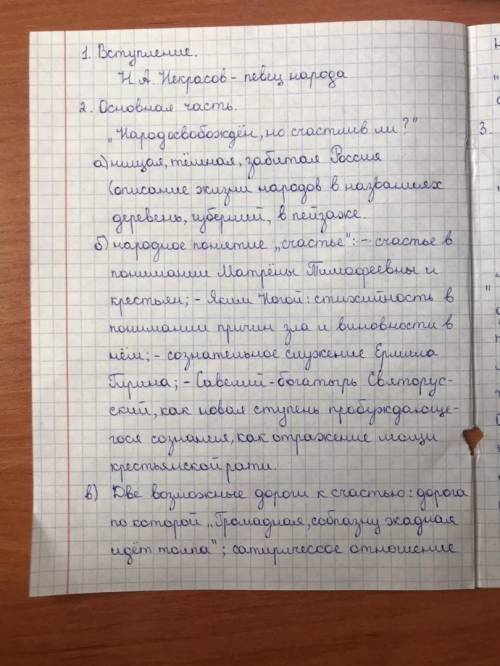 1. Вступление.
Н. А. Некрасов - певец народа
2. Основная часть.
„Народ освобождён, но счастлив ли?"
а) нищая, тёмная, забитая Россия
(описание жизни народов в названиях
деревень, губерний, в пейзаже.
б) народное понятие „счастье": - счастье в
понимании Матрёны Тимофеевны и
крестьян; - Яким Нагой: стихийность в
понимании причин зла и виновности в
нём; - сознательное служение Ермила
Гирина; - Савелий - богатырь Святорус-
ский, как новая ступень пробуждающе-
гося сознания, как отражение мощи
крестьянской рати.
в) Две возможные дороги к счастью: дорога
по которой „Громадная, соблазну жадная
идёт толпа"; сатирическое отношение
3.